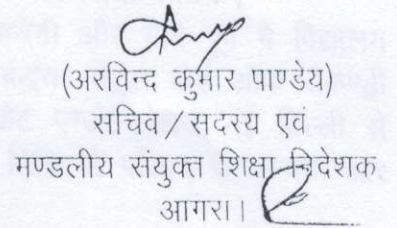 (अरविन्द कुमार पाण्डेय)
सचिव/सदस्य एवं
मण्डलीय संयुक्त शिक्षा निदेशक
आगरा।।